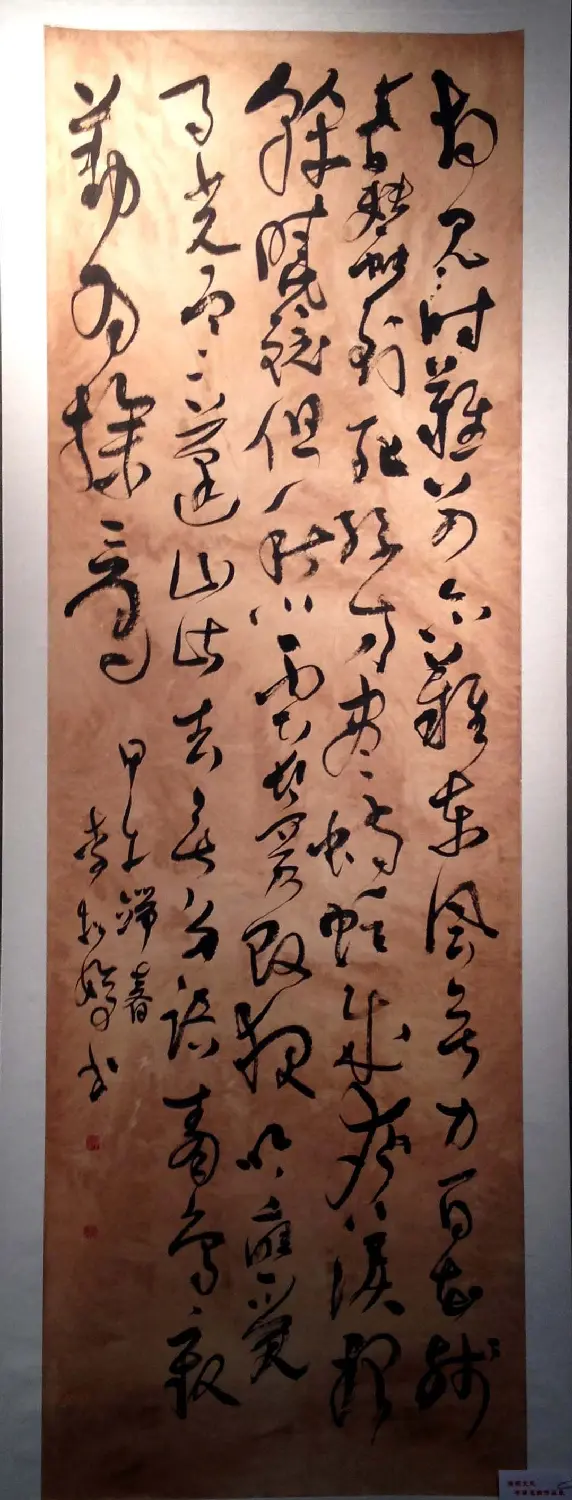 相見時難別亦難東風無力百花殘
春蠶到死絲方盡蠟炬成灰淚始
乾曉鏡但愁雲鬢改夜吟應覺
月光寒蓬山此去無多路青鳥殷
勤為探看
甲午春
書